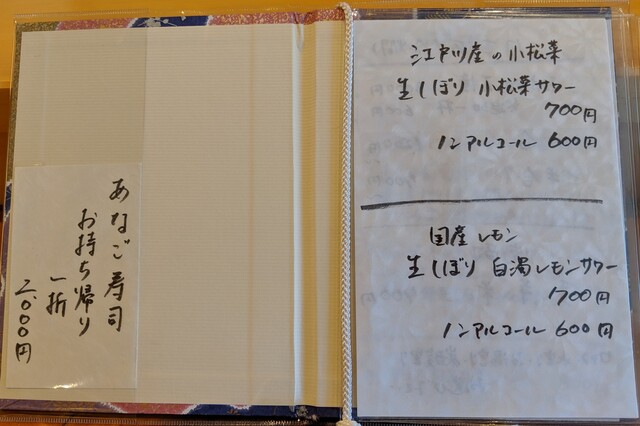 あなご寿司
お持ち帰り
一折
2,000円
江戸川産の小松菜
生しぼり 小松菜サワー
700円
ノンアルコール 600円
国産レモン
生しぼり 白濁レモンサワー
700円
ノンアルコール 600円